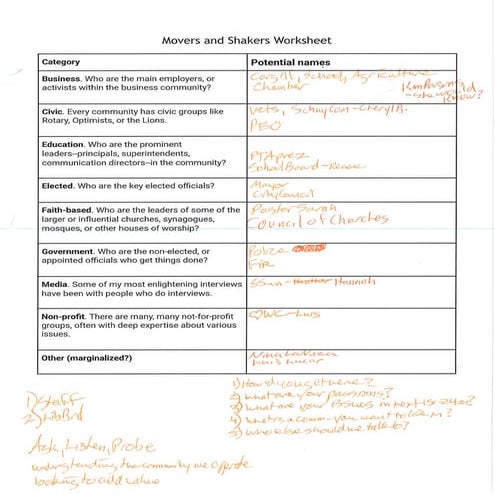 Movers and Shakers Worksheet
Category
Potential names
Business. Who are the main employers, or
activists within the business community?
Cargill, School, Agriculture
Chamber
Kim Parsons
Know?
Civic. Every community has civic groups like
Rotary, Optimists, or the Lions.
Vets, Cheryl B.
PEO
Education. Who are the prominent
leaders—principals, superintendents,
communication directors—in the community?
PTA prez
School Board - Renee
Elected. Who are the key elected officials?
Mayor
City Council
Faith-based. Who are the leaders of some of the
larger or influential churches, synagogues,
mosques, or other houses of worship?
Paister Sarah
Council of Churches
Government. Who are the non-elected, or
appointed officials who get things done?
Police
Fire
Media. Some of my most enlightening interviews
have been with people who do interviews.
SSun - Hannah
Non-profit. There are many, many not-for-profit
groups, often with deep expertise about various
issues.
WC - Luis
Other (marginalized?)
1) Staff
2) Lib Brd
Ask, Listen, Probe
understanding the community we operate
looking to add value
1) How did you get here?
2) What are your passions?
3) What are your issues in next 12-24 mos?
4) What's a comm you want to live in?
5) Who else should we talk to?